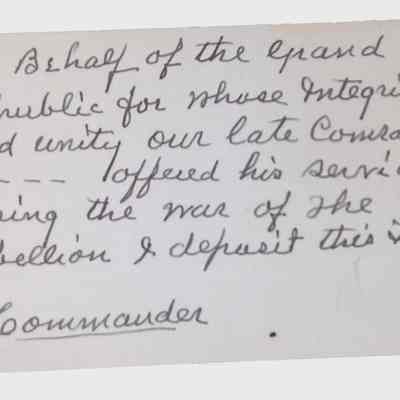 Behalf of the Grand
public for whose Integri
d unity our late Comra
--- offered his servi
ing the war of The
bellion I deposit this
Commander